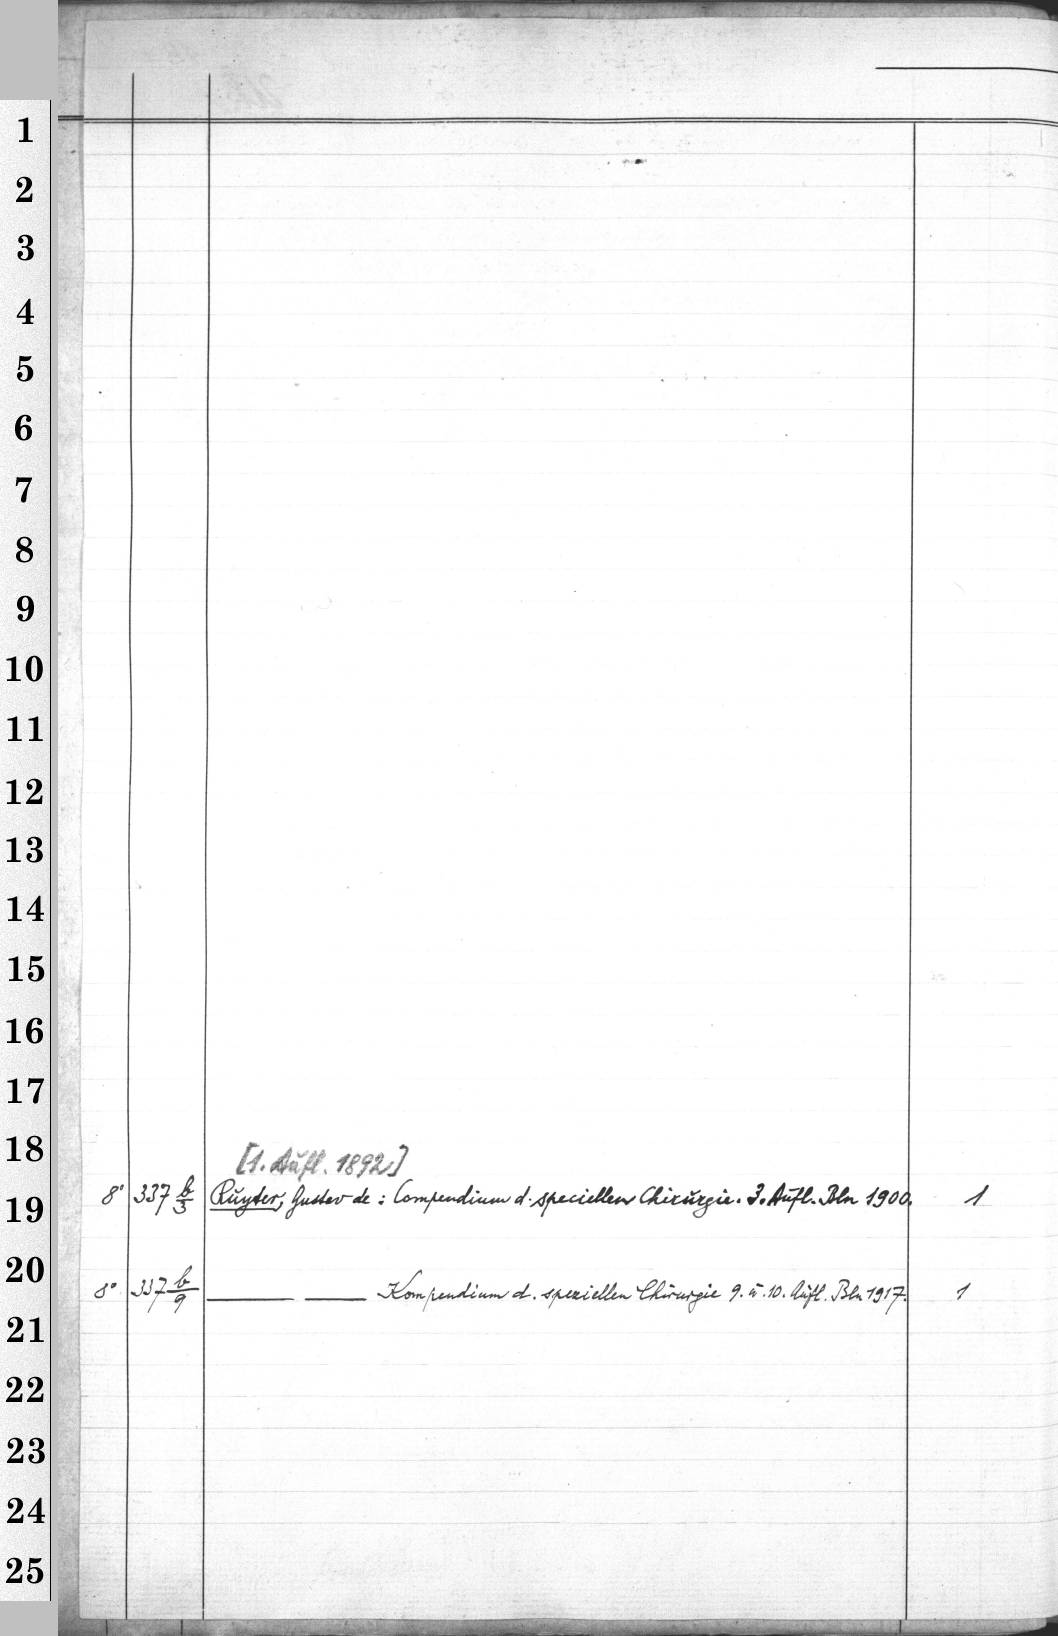 1
2
3
4
5
6
7
8
9
10
11
12
13
14
15
16
17
18
[1. Aufl. 1892]
19
8° 337 b/3 Ruyter, Gustav de : Compendium d. speciellen Chirurgie. 3. Aufl. Bln 1900. 1
20
8° 337 b/9 ——— ——— Kompendium d. speziellen Chirurgie 9. u. 10. Aufl. Bln 1917. 1
21
22
23
24
25